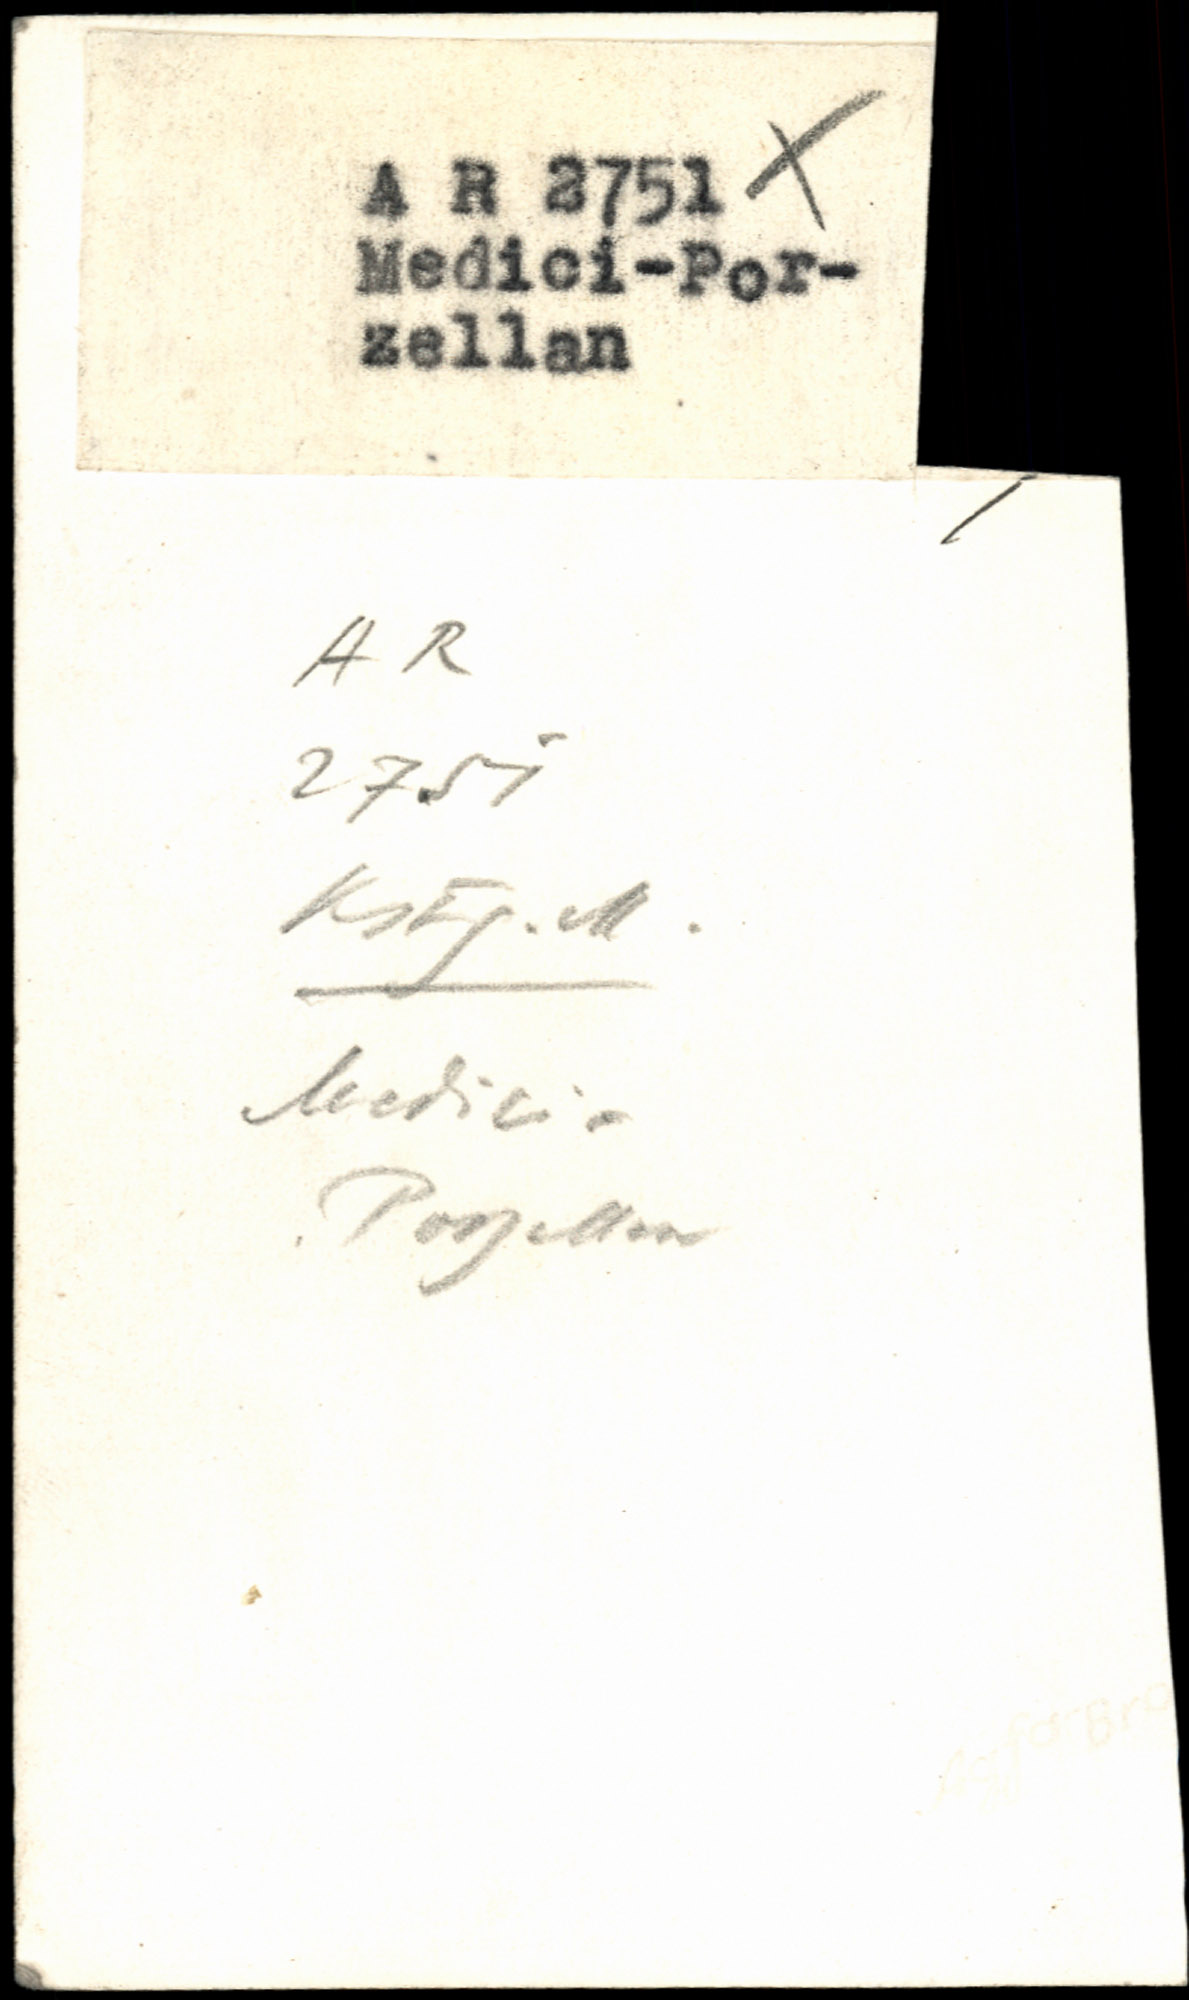 A R 2751 X
Medici-Por-
zellan
A R
2751
Kstg. M.
Medici-
Porzellan
Agfa Bro